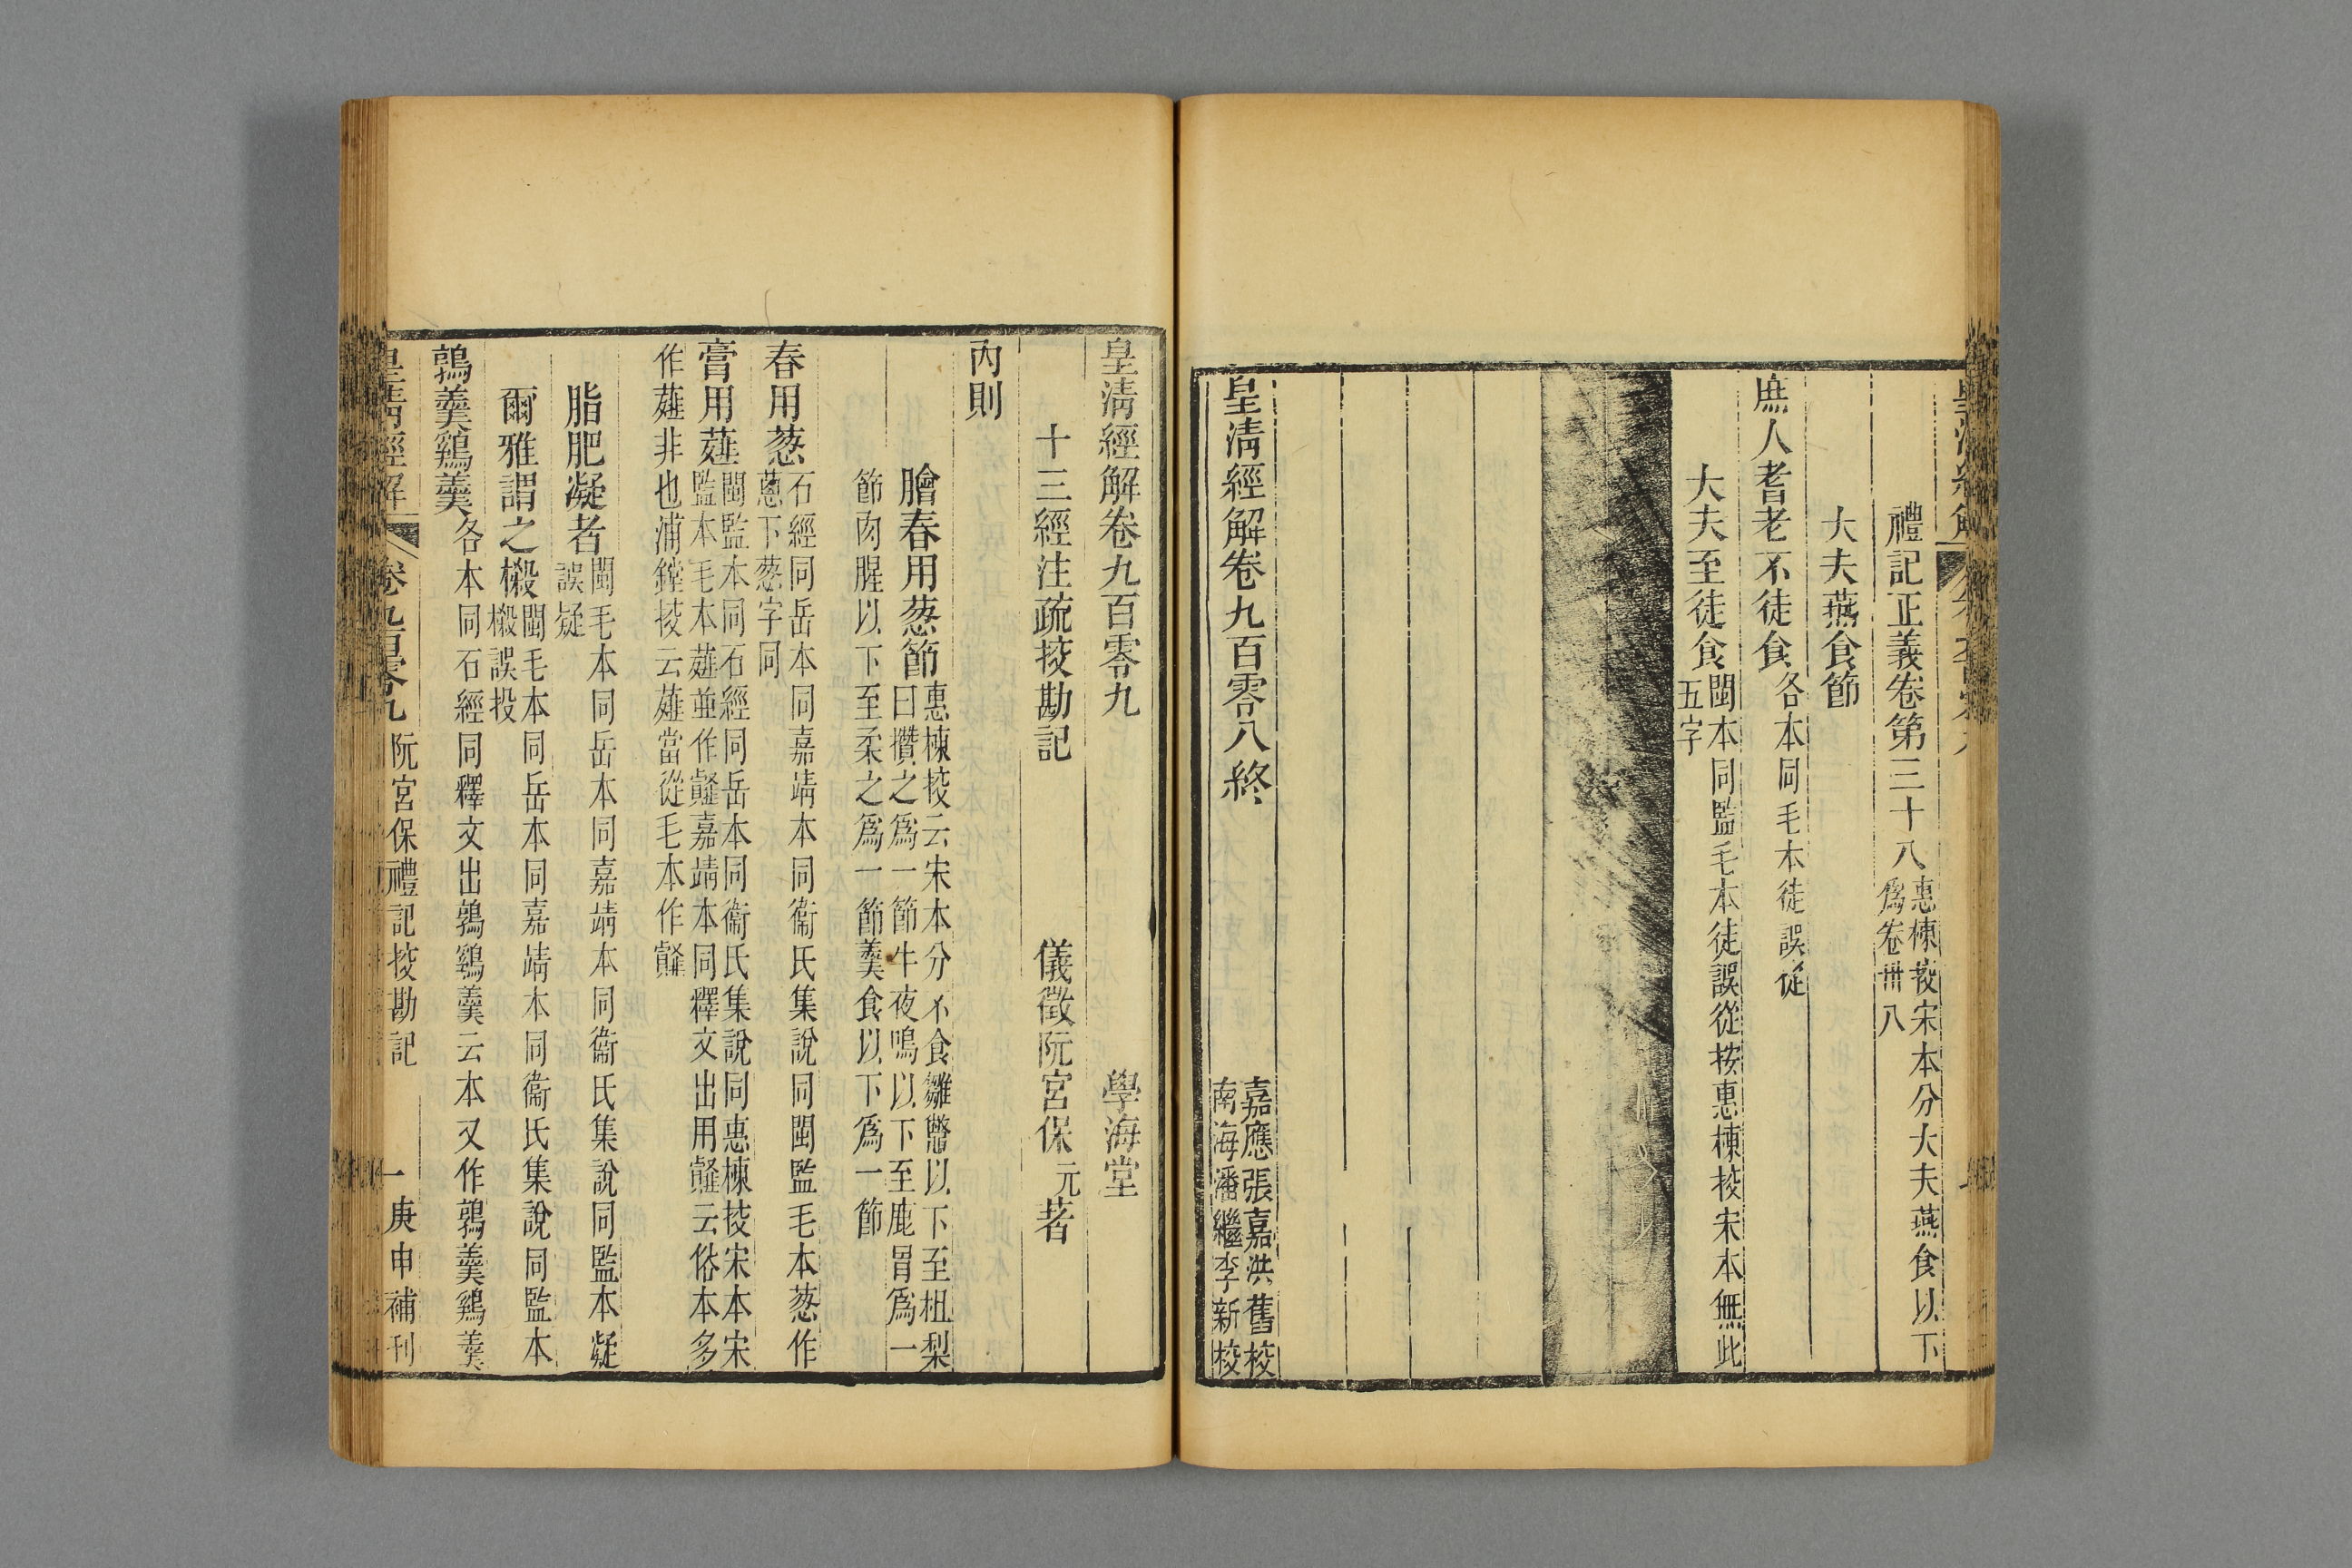 禮記正義卷第三十八惠棟挍宋本分大夫燕食以下
爲卷卅八
大夫燕食節
庶人耆老不徒食各本同毛本徒誤從
大夫至徒食閩本同監毛本徒誤從按惠棟挍宋本無此
五字
皇淸經解卷九百零八終
嘉應張嘉洪舊校
南海潘繼李新校
皇淸經解卷九百零九
學海堂
十三經注疏挍勘記
儀徵阮宮保元著
內則
膾春用葱節惠棟挍云宋本分不食雛鼈以下至柤梨
曰攢之爲一節牛夜鳴以下至鹿胃爲一
節肉腥以下至柔之爲一節羹食以下爲一節
春用葱石經同岳本同嘉靖本同衞氏集說同閩監毛本葱作
蔥下葱字同
膏用薤閩監本同石經同岳本同衞氏集說同惠棟挍宋本宋
監本毛本薤並作䪥嘉靖本同釋文出用䪥云俗本多
作薤非也浦鏜挍云薤當從毛本作䪥
脂肥凝者閩毛本同岳本同嘉靖本同衞氏集說同監本凝
誤疑
爾雅謂之椴閩毛本同岳本同嘉靖本同衞氏集說同監本
椴誤投
鶉羹鷄羹各本同石經同釋文出鶉鷄羹云本又作鶉羹鷄羹
皇淸經解
卷九百零九
阮宮保禮記挍勘記
一
庚申補刊